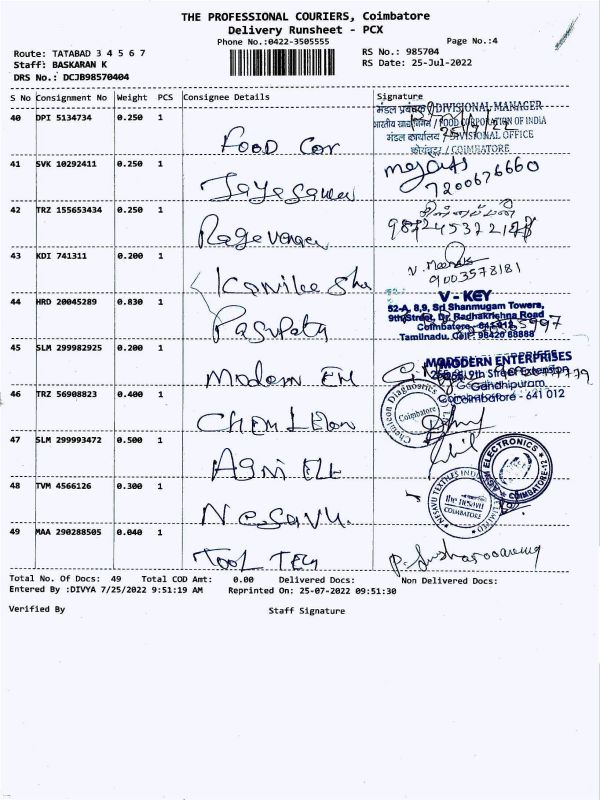 THE PROFESSIONAL COURIERS, Coimbatore
Delivery Runsheet - PCX
Phone No.:0422-3505555
Page No.:4
Route: TATABAD 3 4 5 6 7
RS No.: 985704
Staff: BASKARAN K
RS Date: 25-Jul-2022
DRS No.: DCJB98570404
S No Consignment No Weight PCS Consignee Details Signature
40 DPI 5134734 0.250 1 FOOD Cor
मंडल प्रबंधक / DIVISIONAL MANAGER
भारतीय खाद्य निगम / FOOD CORPORATION OF INDIA
मंडल कार्यालय / DIVISIONAL OFFICE
कोयंबटूर / COIMBATORE
41 SVK 10292411 0.250 1
7200676660
42 TRZ 155653434 0.250 1
43 KDI 741311 0.200 1
9003578181
44 HRD 20045289 0.830 1
V - KEY
52-A, 8,9, Sri Shanmugam Towers,
9th Street, Dr. Radhakrishna Road
Coimbatore
Tamilnadu. Cell: 98420 88888
45 SLM 299982925 0.200 1 Modern
MODERN ENTERPRISES
9th Street Extension
Gandhipuram
Coimbatore - 641 012
46 TRZ 56908823 0.400 1
Chemicon Diagnostics
Coimbatore
47 SLM 299993472 0.500 1 Agni
ELECTRONICS
COIMBATORE
48 TVM 4566126 0.300 1 Nesavu.
NESAVU TEXTILES INDIA LIMITED
the nesavu
COIMBATORE
49 MAA 290288505 0.040 1 TOOL TECH
Total No. Of Docs: 49 Total COD Amt: 0.00 Delivered Docs: Non Delivered Docs:
Entered By :DIVYA 7/25/2022 9:51:19 AM Reprinted On: 25-07-2022 09:51:30
Verified By Staff Signature